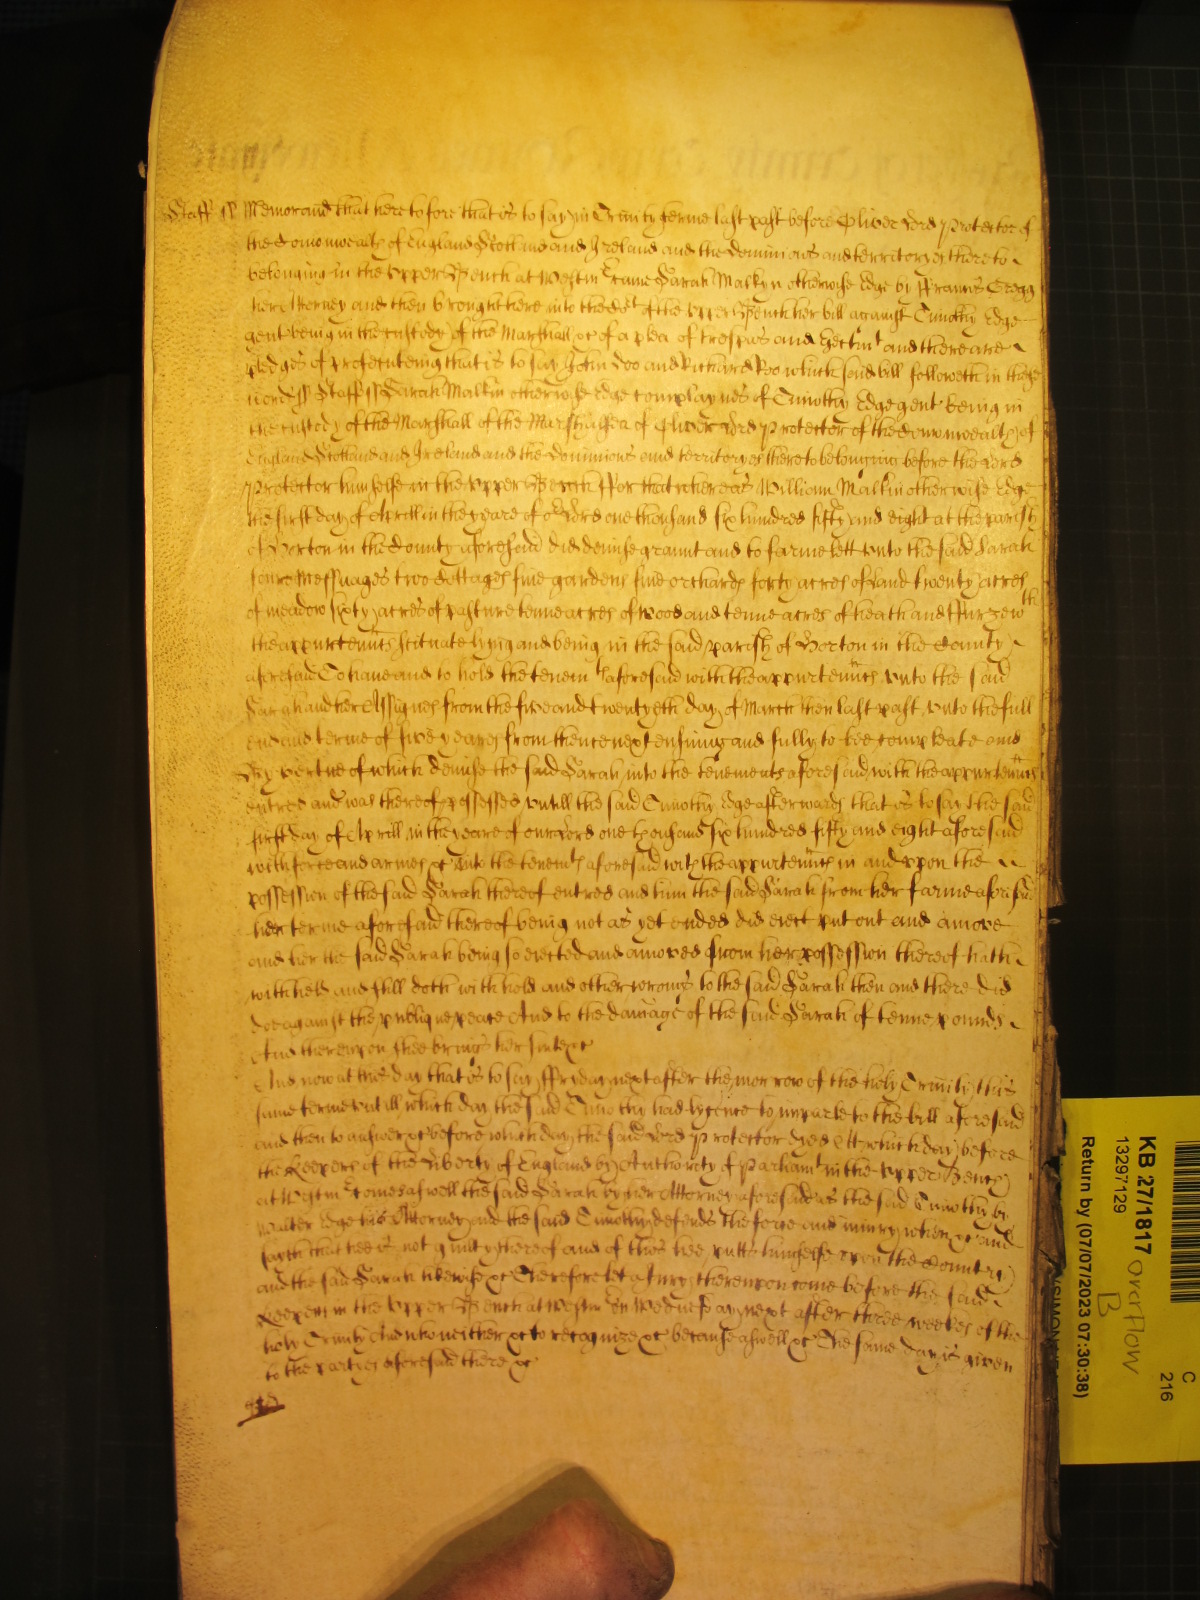 Staff ss Memorand that heretofore that is to say in Trinity terme last past before Oliver Lord Protector of
the Comonwealth of England Scotland and Ireland and the dominions and territoryes thereto
belonging in the upper Bench at Westm came Sarah Malkyn otherwise Edge by Francis Gregg
her Attorney and then brought here into the Cot of the upper Bench her bill against Timothy Edge
gent being in the custody of the Marshall &c of a plea of trespas and Eectmt and there are
pledges of prosecuting that is to say John Doo and Richard Roo which said bill followeth in these
words ss Staff ss Sarah Malkin otherwise Edge complaynes of Timothy Edge gent being in
the custody of the Marshall of the Marshalsea of Oliver Lord Protector of the Comonwealth of
England Scotland and Ireland and the dominions and territoryes thereto belonging before the Lord
Protector himselfe in the upper Bench For that whereas William Malkin otherwise Edge
the first day of Aprill in the yeare of our Lord one thousand six hundred fifty and eight at the parish
of Horton in the County aforesaid did demise graunt and to farme lett unto the said Sarah
foure Messuages two Cottages five gardens five orchards forty acres of Land twenty acres
of meadow sixty acres of pasture tenne acres of Wood and tenne acres of heath and Furze wth
the appurtennces scituate lying and being in the said parish of Horton in the County
aforesaid To have and to hold the tenemts aforesaid with the appurtennces unto the said
Sarah and her Assignes from the five and twentyeth day of March then last past unto the full
end and terme of five yeares from thence next ensuing and fully to bee compleate and
By vertue of which demise the said Sarah into the tenements aforesaid with the appurtennces
entred and was thereof possessed untill the said Timothy Edge afterwards that is to say the said
first day of Aprill in the yeare of our Lord one thousand six hundred fifty and eight aforesaid
with force and armes &c into the tenemts aforesaid with the appurtennces in and upon the
possession of the said Sarah thereof entred and him the said Sarah from her farme aforesaid
her terme aforesaid thereof being not as yet ended did eiect put out and amove
and her the said Sarah being so eiected and amoved from her possession thereof hath
withheld and still doth withhold and other wrongs to the said Sarah then and there did
doe against the publique peace And to the damage of the said Sarah of tenne pounds
And thereupon shee brings her suite &c
And now at this day that is to say Fryday next after the morrow of the holy Trinity this
same terme untill which day the said Timothy had lycence to imparle to the bill aforesaid
and then to answer &c before which day the said Lord Protector dyed Att which day before
the Keepers of the Liberty of England by Authority of Parliamt in the upper Bench
at Westm comes aswell the said Sarah by her Attorney aforesaid as the said Timothy by
Walter Edge his Attorney and the said Timothy defends the force and iniury when &c and
sayth that hee is not guilty thereof and of this hee putts himselfe upon the Country
and the said Sarah likewise &c Therefore let a Jury thereupon come before the said
Keepers in the upper Bench at Westm on Wednesday next after three weekes of the
holy Trinity And who neither &c to recognize &c because aswell &c The same day is given
to the partyes aforesaid there &c
KB 27/1817 Overflow
B
13297129
Return by (07/07/2023 07:30:38)
C
216